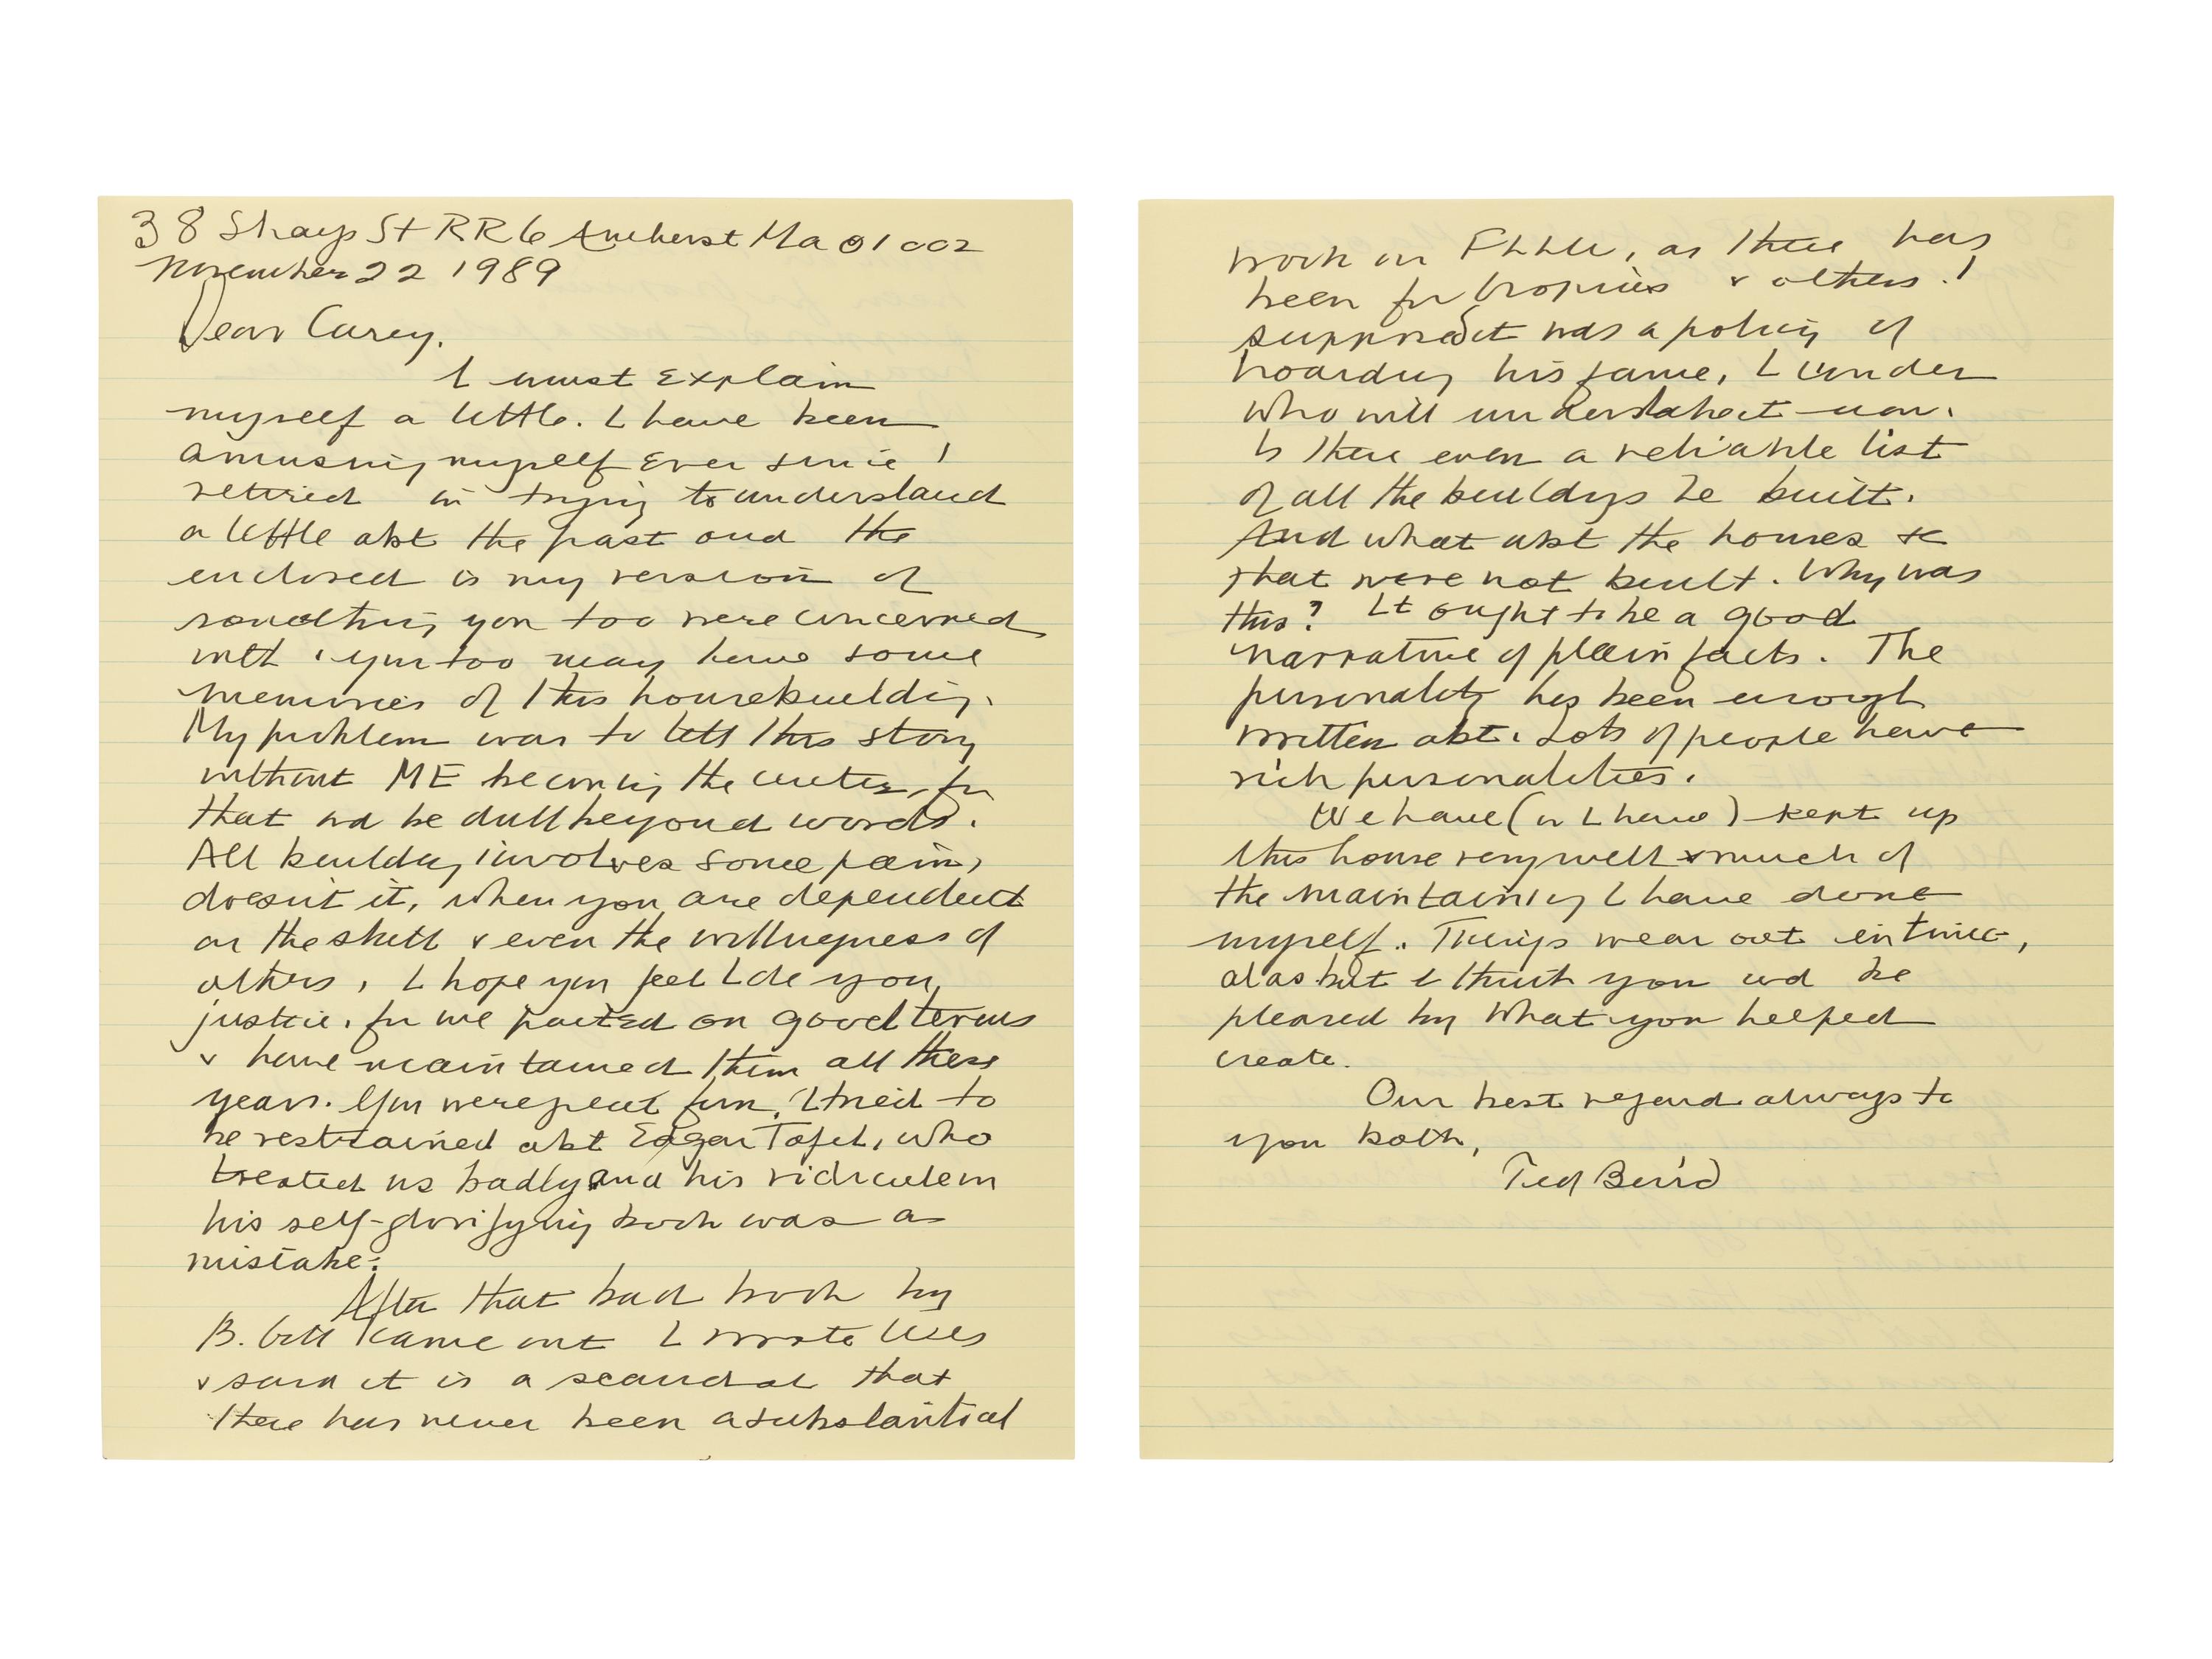 38 Shays St RR6 Amherst Ma 01002
November 22 1989
Dear Carey,
I must explain
myself a little. I have been
amusing myself ever since I
retired in trying to understand
a little abt the past and the
enclosed is my version of
something you too were concerned
with. You too may have some
memories of this housebuilding.
My problem was to tell this story
without ME becoming the center, for
that wd be dull beyond words.
All building involves some pain,
doesn't it, when you are dependent
on the skill & even the willingness of
others, I hope you feel I do you
justice, for we parted on good terms
& have maintained them all these
years. You were great fun. I tried to
be restrained abt Edgar Tafel, who
treated us badly and his ridicule in
his self-glorifying book was a
mistake.
After that bad book by
B. Gill came out I wrote
& said it is a scandal that
there has never been a substantial
book on FLLW, as there has
been for & others. I
suppose it was a policy of
hoarding his fame, I wonder
who will undertake it now.
Is there even a reliable list
of all the buildings he built.
And what abt the houses &c
that were not built. Why was
this? It ought to be a good
narrative of plain facts. The
personality has been enough
written abt. Lots of people have
rich personalities.
We have (or I have) kept up
this house very well & much of
the maintaining I have done
myself. Things wear out in time,
alas but I think you wd be
pleased by what you helped
create.
Our best regard always to
you both,
Ted Baird